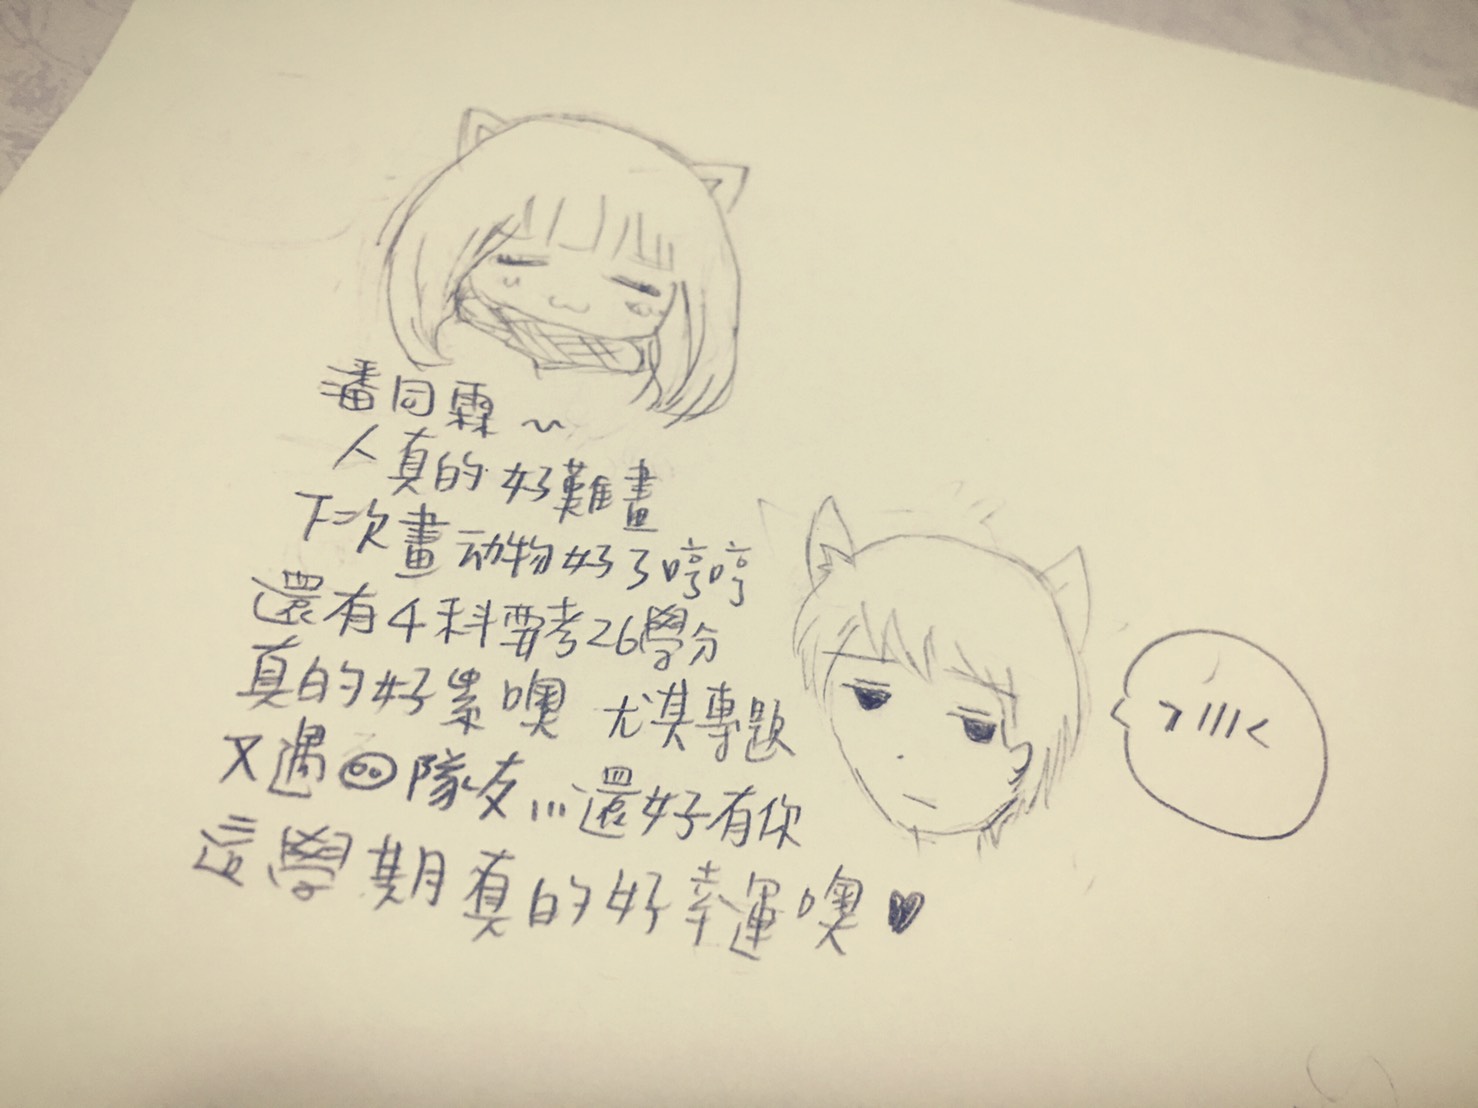 潘同霖~
人真的好難畫
下次畫动物好了哼哼
還有4科要考26學分
真的好累噢 尤其專題
又遇隊友...還好有你
這學期真的好幸運噢♥